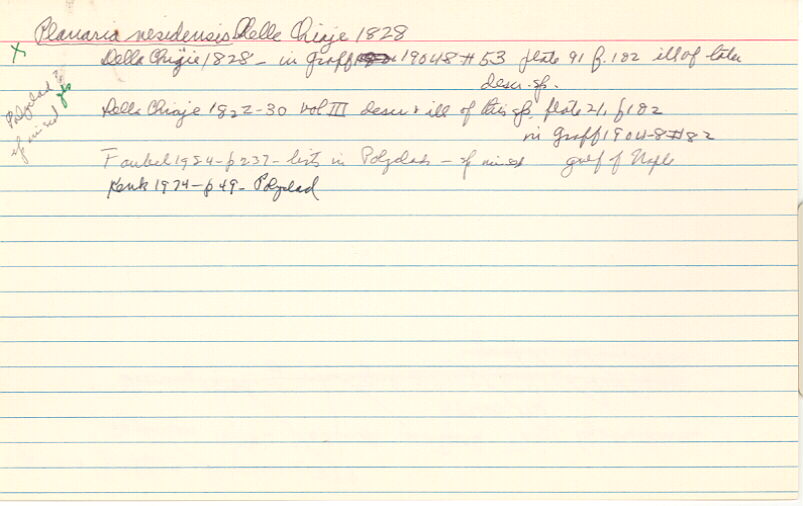 Planaria nesidensis Delle Chiaje 1828
X
Della Chiaje 1828 - in Graff 1904-8 # 53 plate 91 f. 182 ill of later
descr. sp.
Polyclad?
yes
Delle Chiaje 1822-30 Vol III descr & ill of this sp. plate 21, f 182
in Graff 1904-8 # 82
Faubel 1984 - p 237 - lists in Polyclads - gulf of Naple
Kenk 1974 - p 49 - Polyclad